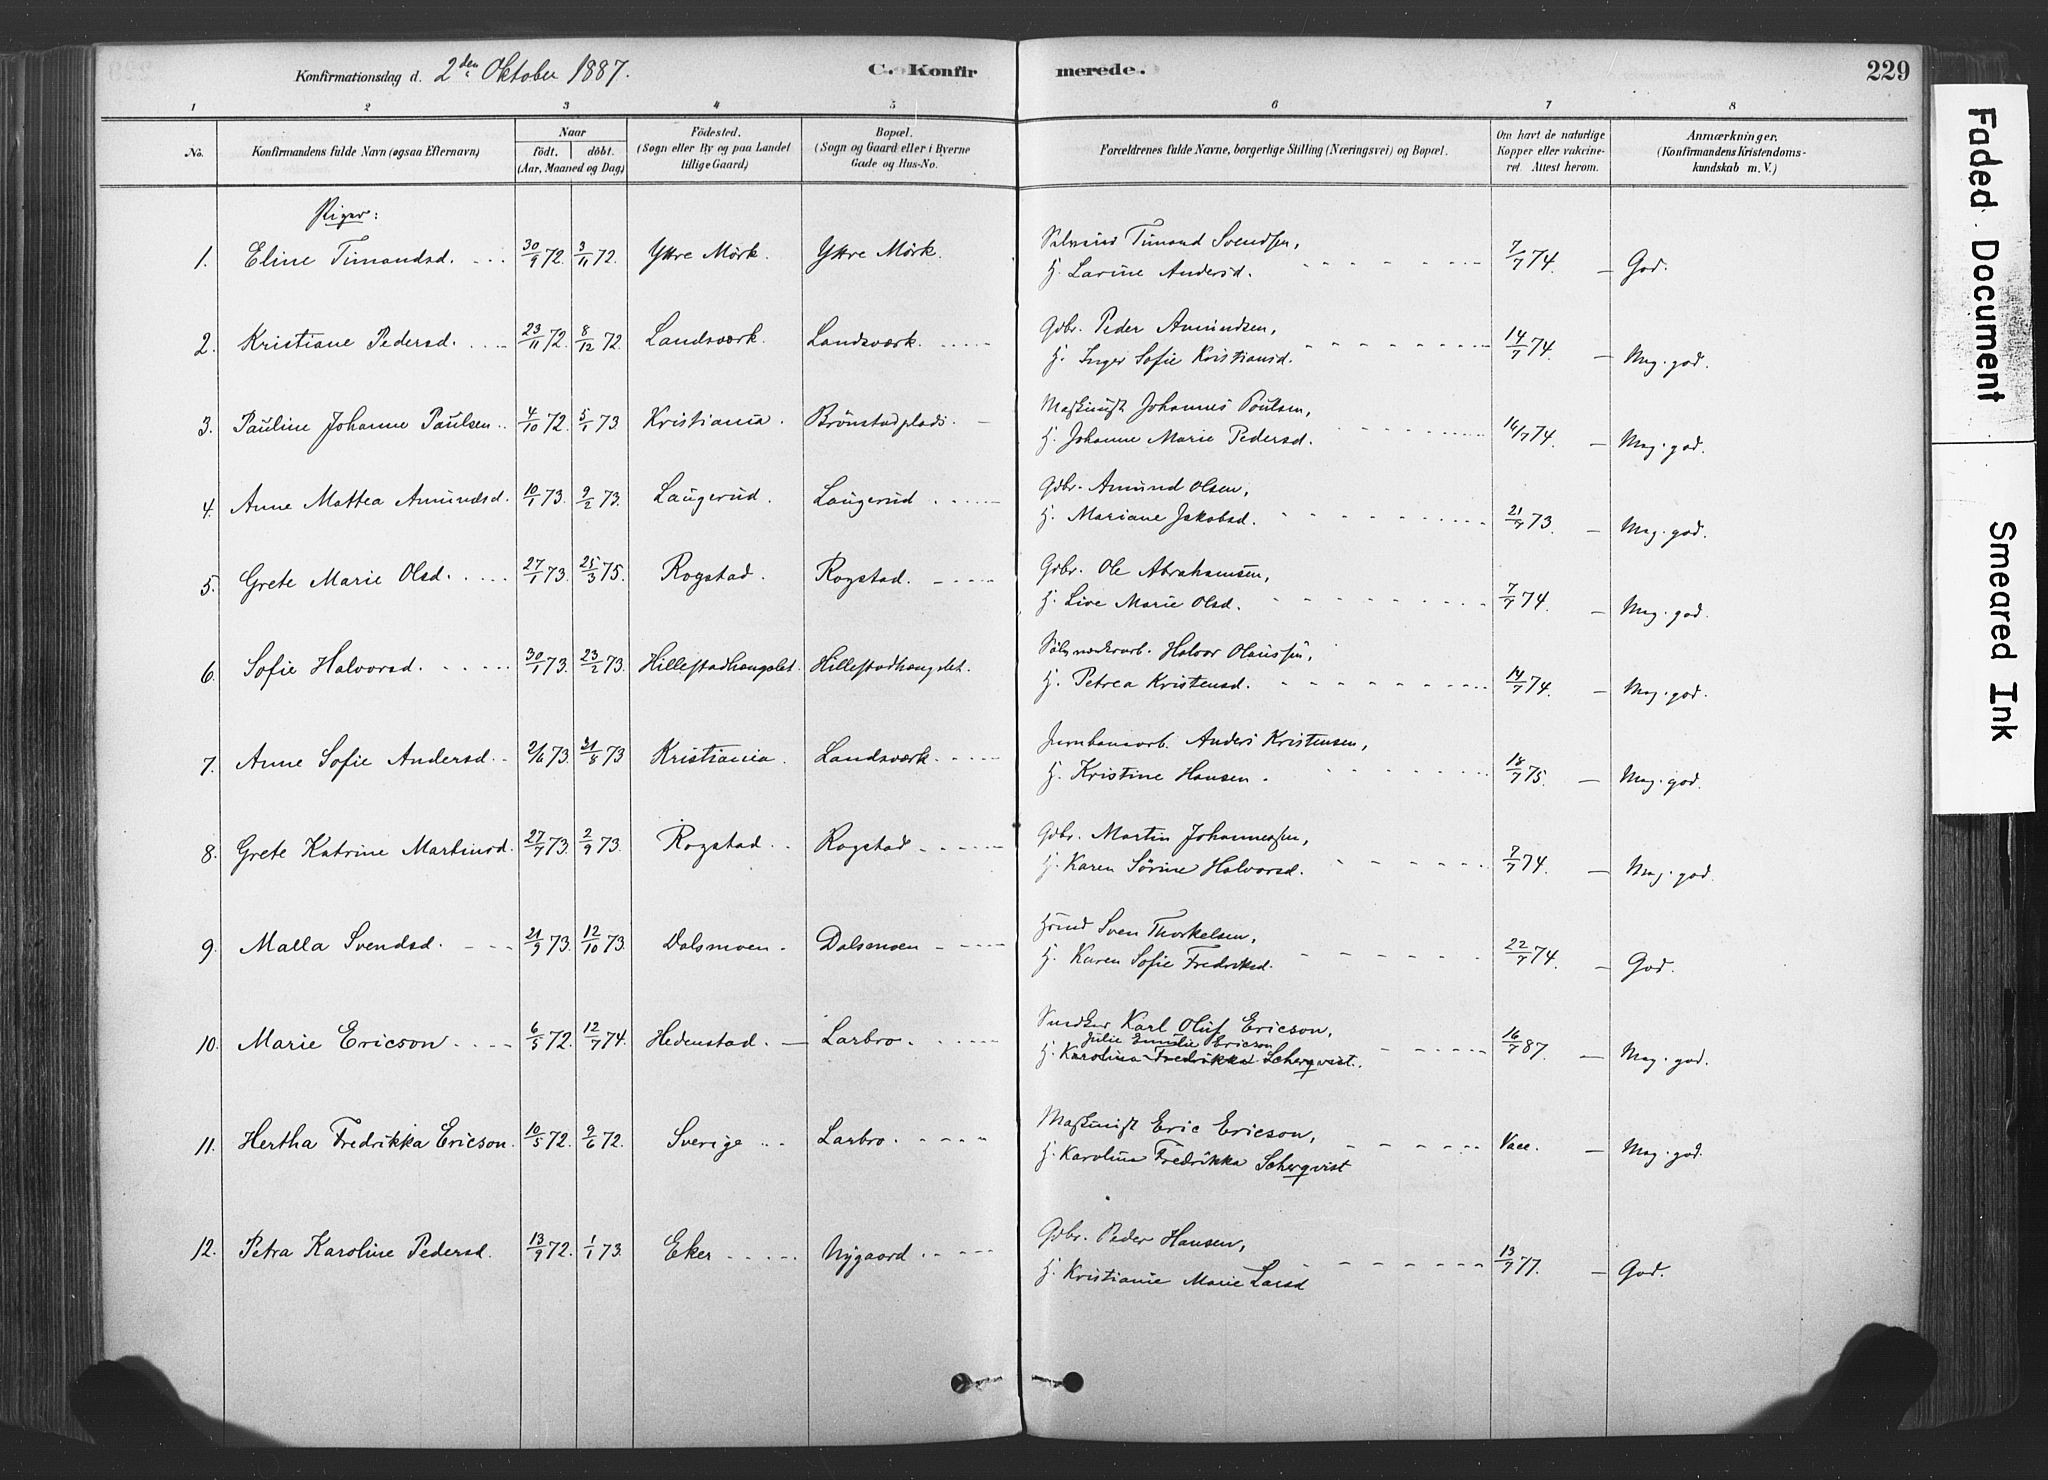 Konfirmationsdag d. 2den Oktober 1887.
C. Konfirmerede.
229
1 2 3 4 5 6 7 8
No.
Konfirmandens fulde Navn (ogsaa Efternavn)
Naar
födt. döbt.
(Aar, Maaned og Dag)
Födested.
(Sogn eller By og paa Landet
tillige Gaard)
Bopæl.
(Sogn og Gaard eller i Byerne
Gade og Hus-No.
Forældrenes fulde Navne, borgerlige Stilling (Næringsvei) og Bopæl.
Om havt de naturlige
Kopper eller vakcine-
ret. Attest herom.
Anmærkninger.
(Konfirmandens Kristendoms-
kundskab m. V.)
Piger:
1. Eline Timandsd. 30/9 72. 3/11 72. Yttre Mörk. Yttre Mörk. Timand Svendsen,
H. Larine Andersd. 7/7 74. God.
2. Kristiane Pedersd. 23/11 72. 8/12 72. Landsværk. Landsværk. Gdbr. Peder Amundsen,
H. Inger Sofie Kristiansd. 14/7 74. Meg. god.
3. Pauline Johanne Paulsen. 4/10 72. 5/1 73 Kristiania. Brönstadplads. Maskinist Johannes Poulsen,
H. Johanne Marie Pedersd. 16/7 74. Meg. god.
4. Anne Mattea Amundsd. 10/1 73. 9/2 73. Laugerud. Laugerud. Gdbr. Amund Olsen,
H. Mariane Jakobsd. 21/7 73. Meg. god.
5. Grete Marie Olsd. 27/1 73. 25/3 75. Rogstad. Rogstad. Gdbr. Ole Abrahamsen,
H. Live Marie Olsd. 7/7 74. Meg. god.
6. Sofie Halvorsd. 30/1 73. 23/2 73. Hillestadhougslet. Hillestadhougslet. Sölvværkarb. Halvor Olaussen,
H. Petrea Kristensd. 14/7 74. Meg. god.
7. Anne Sofie Andersd. 2/6 73. 31/8 73 Kristiania. Landsværk. Jernbanearb. Anders Kristensen,
H. Kristine Hansen. 18/7 75. Meg. god.
8. Grete Katrine Martinsd. 27/7 73. 2/9 73. Rogstad. Rogstad. Gdbr. Martin Johannessen,
H. Karen Sörine Halvorsd. 7/7 74. Meg. god.
9. Malla Svendsd. 21/9 73. 12/10 73. Dalsmoen. Dalsmoen. Sven Thorkelsen,
H. Karen Sofie Fredriksd. 22/7 74. God.
10. Marie Ericson. 6/5 72. 12/7 74. Hedenstad. Larbro. Snedker Karl Oluf Ericson,
Julie Emilie Ericson
H. Karolina Fredrikka Scherqvist. 16/7 87. Meg. god.
11. Hertha Fredrikka Ericson. 10/5 72. 9/6 72. Sverige. Larbro. Maskinist Eric Ericson,
H. Karolina Fredrikka Scherqvist Vacc. Meg. god.
12. Petra Karoline Pedersd. 13/9 72. 1/1 73. Eker. Nygaard. Gdbr. Peder Hansen,
H. Kristianie Marie Larsd 13/7 77. God.
Faded Document
Smeared Ink